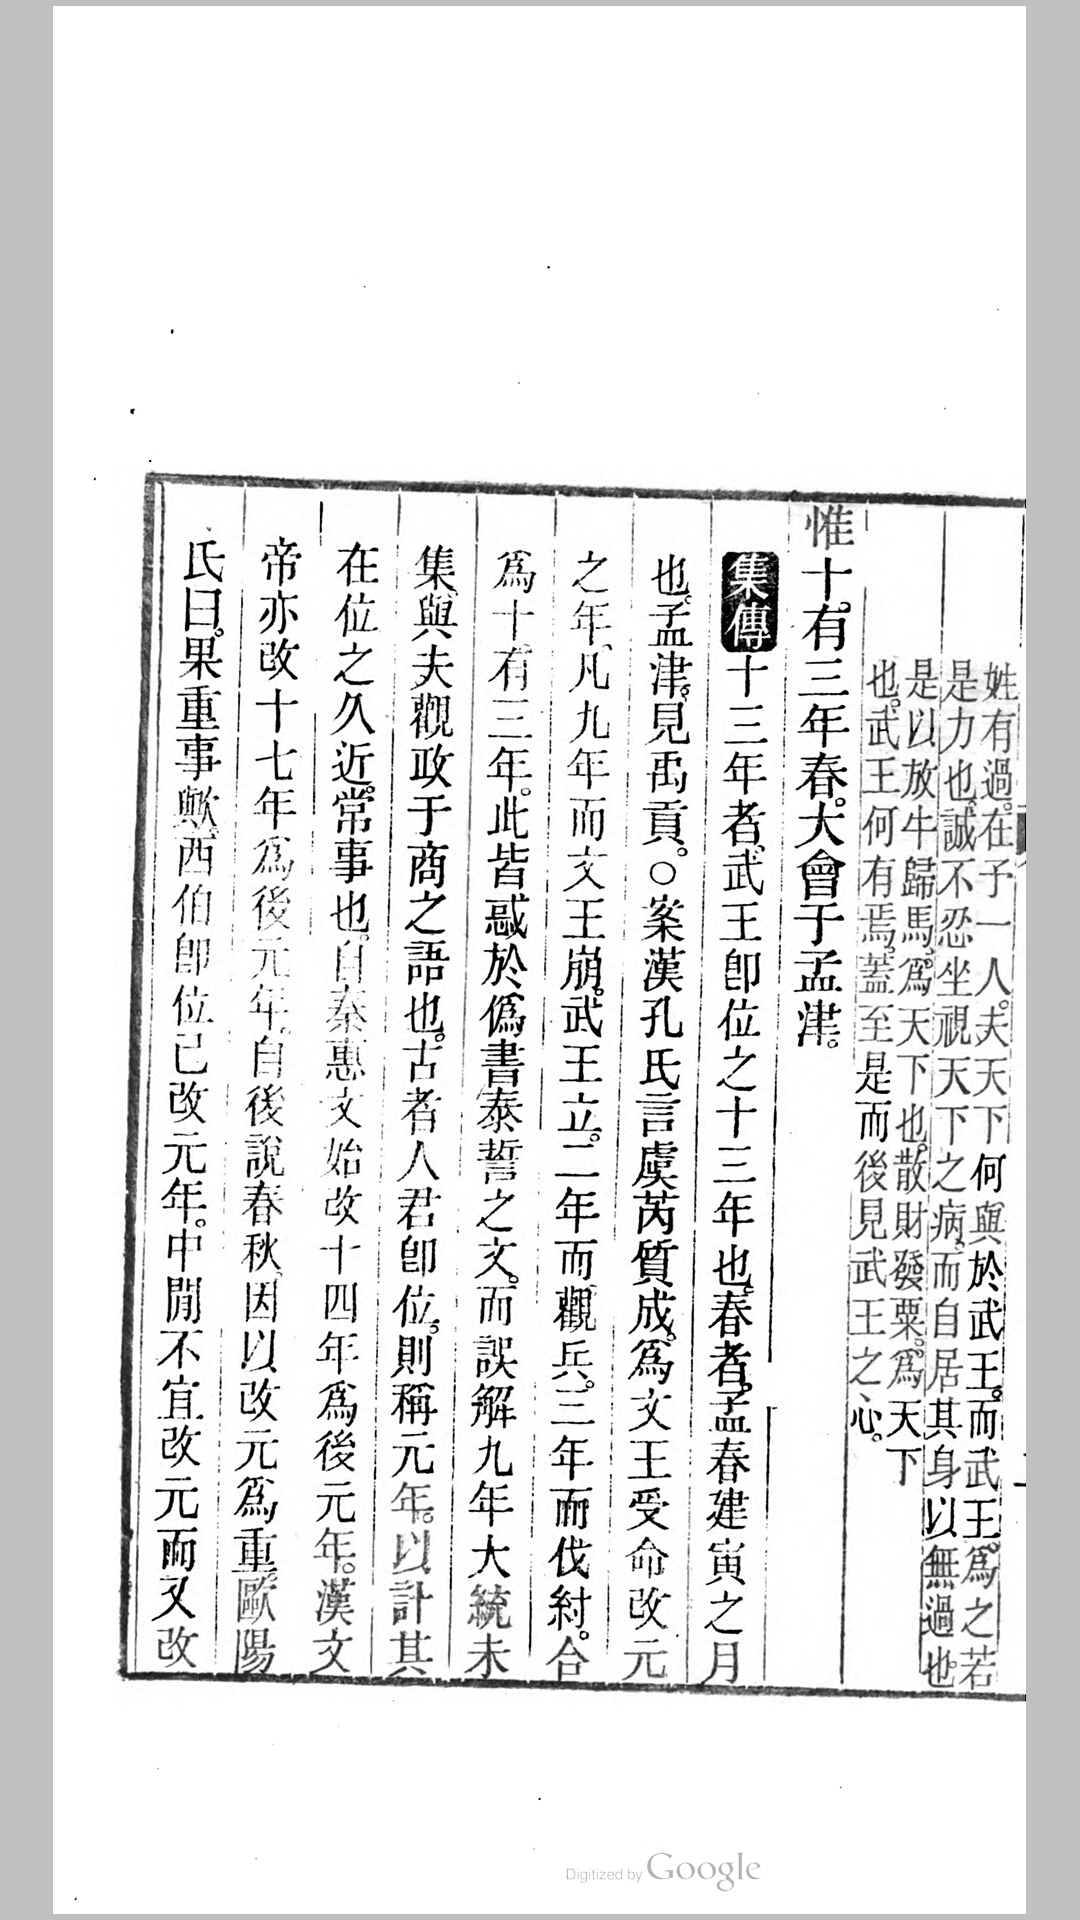 姓有過。在予一人。夫天下何與於武王。而武王。爲之若
是力也。誠不忍坐視天下之病。而自居其身以無過也
是以放牛歸馬。爲天下也。散財發粟。爲天下
也。武王何有焉。蓋至是而後見武王之心。
惟十。有三年春。大會于孟津。
集傳十三年者。武王卽位之十三年也。春者。孟春建寅之月
也。孟津。見禹貢。○案漢孔氏言虞芮質成。爲文王受命改元
之年。凡九年而文王崩。武王立。二年而觀兵。三年而伐紂。合
爲十。有三年。此皆惑於僞書泰誓之文。而誤解九年大統未
集。與夫觀政于商之語也。古者人君卽位。則稱元年。以計其
在位之久近。常事也。自秦惠文始改十四年爲後元年。漢文
帝亦改十七年爲後元年。自後說春秋。因以改元爲重。歐陽
氏曰。果重事歟。西伯卽位已改元年。中閒不宜改元而又改
Digitized by Google